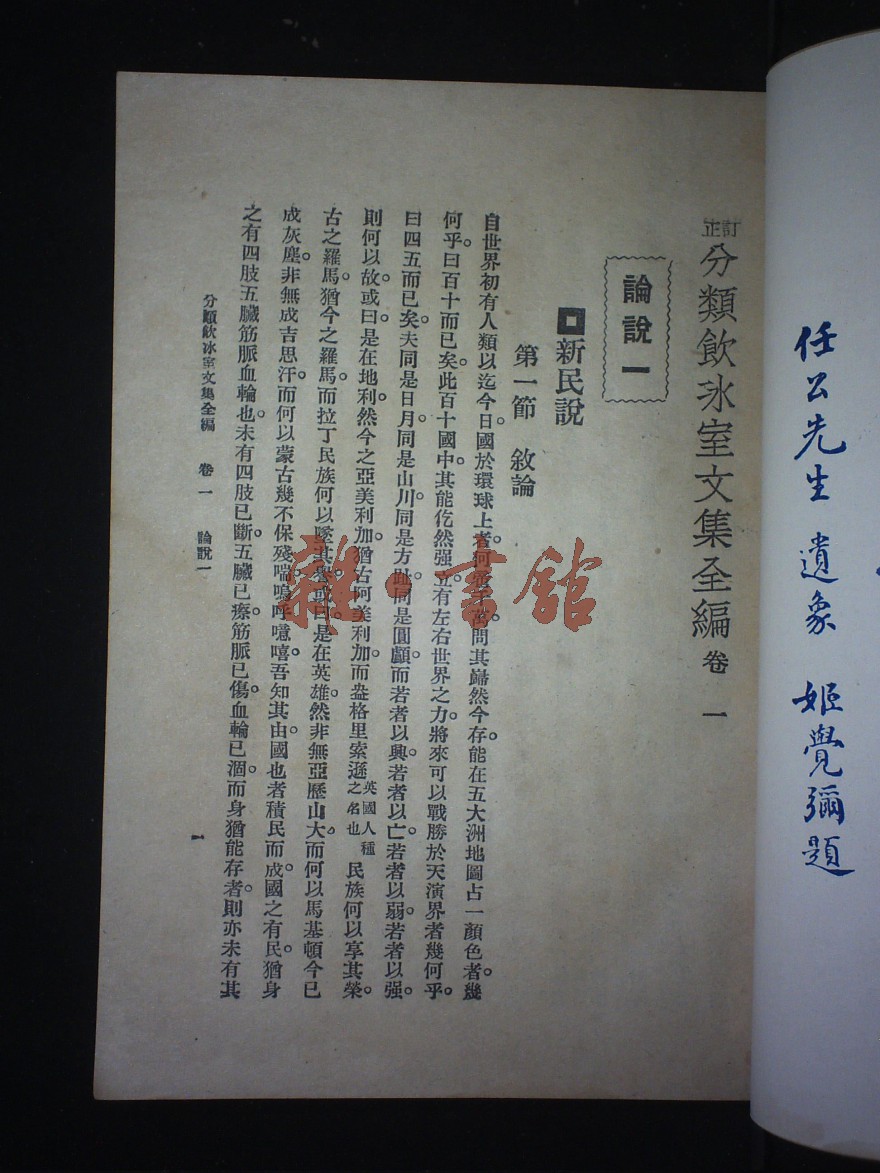 任公先生遺象 姬覺彌題
訂正分類飲冰室文集全編卷一
論說一
新民說
第一節 敘論
自世界初有人類以迄今日。國於環球上者。何啻千萬。問其巋然今存。能在五大洲地圖占一顏色者。幾
何乎。曰百十而已矣。此百十國中。其能仡然强立。有左右世界之力。將來可以戰勝於天演界者。幾何乎。
曰四五而已矣。夫同是日月。同是山川。同是方趾。同是圓顱。而若者以興。若者以亡。若者以弱。若者以强。
則何以故。或曰。是在地利。然今之亞美利加。猶古阿美利加。而盎格里索遜英國人種之名也民族何以享其榮。
古之羅馬。猶今之羅馬。而拉丁民族何以墜其譽。或曰。是在英雄。然非無亞歷山大。而何以馬基頓今已
成灰塵。非無成吉思汗。而何以蒙古幾不保殘喘。嗚呼噫嘻。吾知其由。國也者積民而成。國之有民。猶身
之有四肢五臟筋脈血輪也。未有四肢已斷。五臟已瘵。筋脈已傷。血輪已涸。而身猶能存者。則亦未有其
分類飲冰室文集全編 卷一 論說一 一
雜·書館